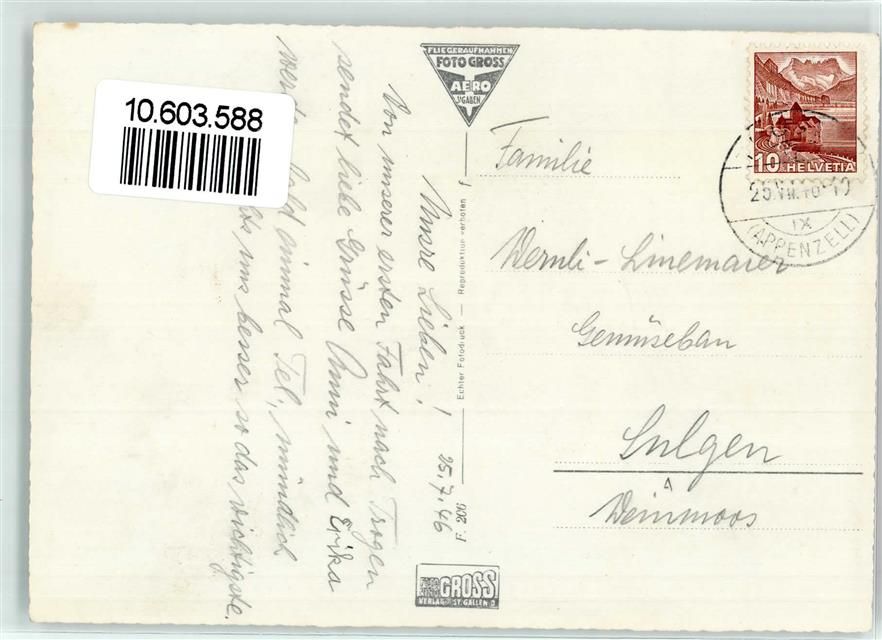 10.603.588
FLIEGERAUFNAHMEN
FOTO GROSS
AERO
ST.GALLEN
Unsre Lieben! 25.7.46
Von unserer ersten Fahrt nach Trogen
sendet liebe Grüsse Anni und Erika
werde bald einmal Tel., mündlich
uns besser so das wichtigste.
Echter Fotodruck — Reproduktion verboten
F. 206
FOTO
GROSS
VERLAG ST. GALLEN O
10 HELVETIA
25.VII.46-19
IX
(APPENZELL)
Familie
Wernli-Linemaier
Gemüsebau
Sulgen
Weinmoos